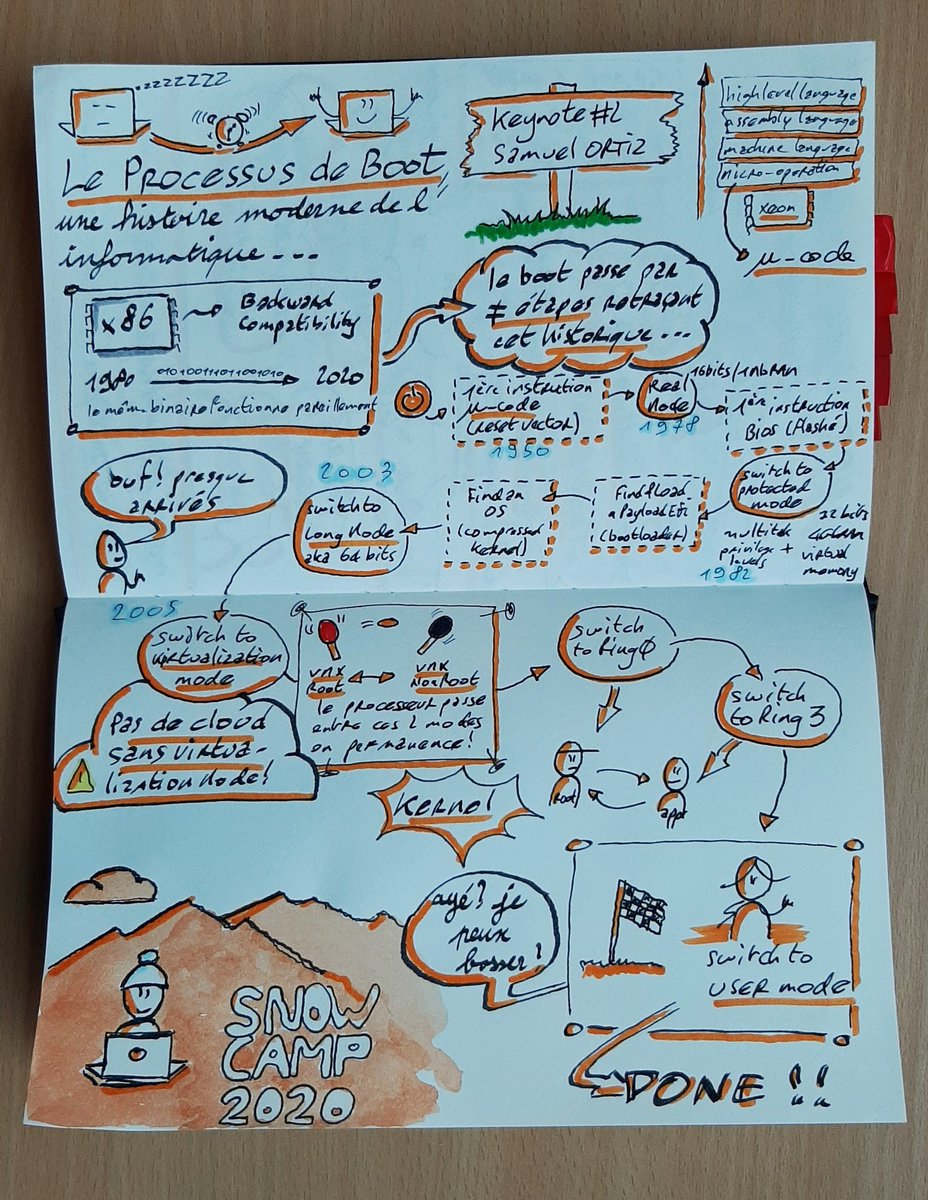 zzzzzzz
Le Processus de Boot,
une histoire moderne de l'
informatique...
Keynote #2
Samuel ORTIZ
high level language
assembly language
machine language
micro-operation
xeon
µ-code
x86
Backward
Compatibility
1980 010100111011001010 2020
le même binaire fonctionne pareillement
le boot passe par
≠ étapes retraçant
cet historique...
1ère instruction
µ-code
(reset vector)
1950
Real
Mode
1978
16bits/1Mb RAM
1ère instruction
Bios (flashé)
switch to
protected
mode
32 bits
virtual
memory
privilege +
levels
1982
Find/load
a Payload Efi
(bootloader)
Find an
OS
(compressed
kernel)
2003
switch to
Long Mode
aka 64 bits
ouf! presque
arrivés
2005
switch to
virtualization
mode
Pas de cloud
sans virtua-
lization Mode!
vmx
Root
vmx
NonRoot
le processeur passe
entre ces 2 modes
en permanence!
Kernel
switch
to Ring 0
switch
to Ring 3
root
app
ayé? je
peux
bosser!
switch to
USER mode
DONE !!
SNOW
CAMP
2020